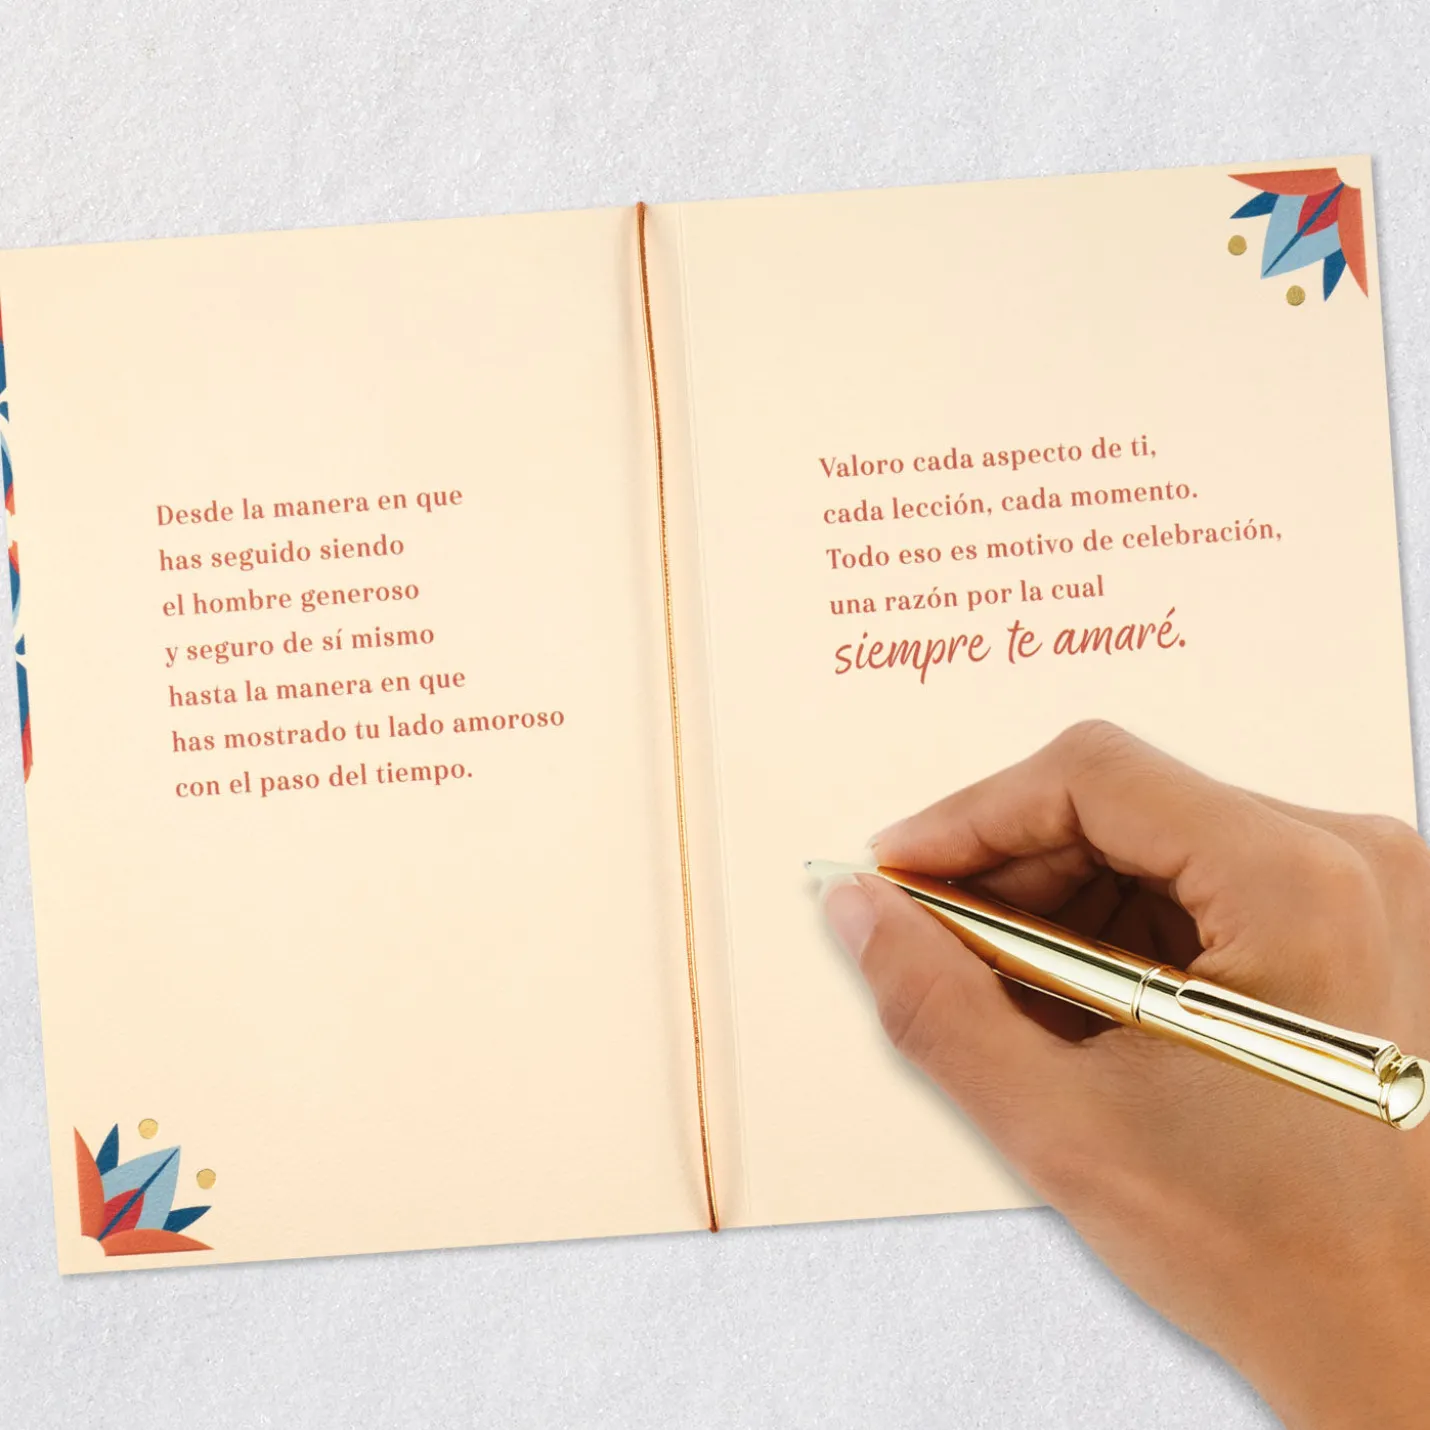 Desde la manera en que
has seguido siendo
el hombre generoso
y seguro de sí mismo
hasta la manera en que
has mostrado tu lado amoroso
con el paso del tiempo.
Valoro cada aspecto de ti,
cada lección, cada momento.
Todo eso es motivo de celebración,
una razón por la cual
siempre te amaré.